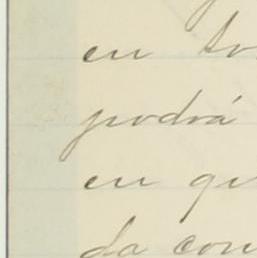 en to
podrá
en qu
da con